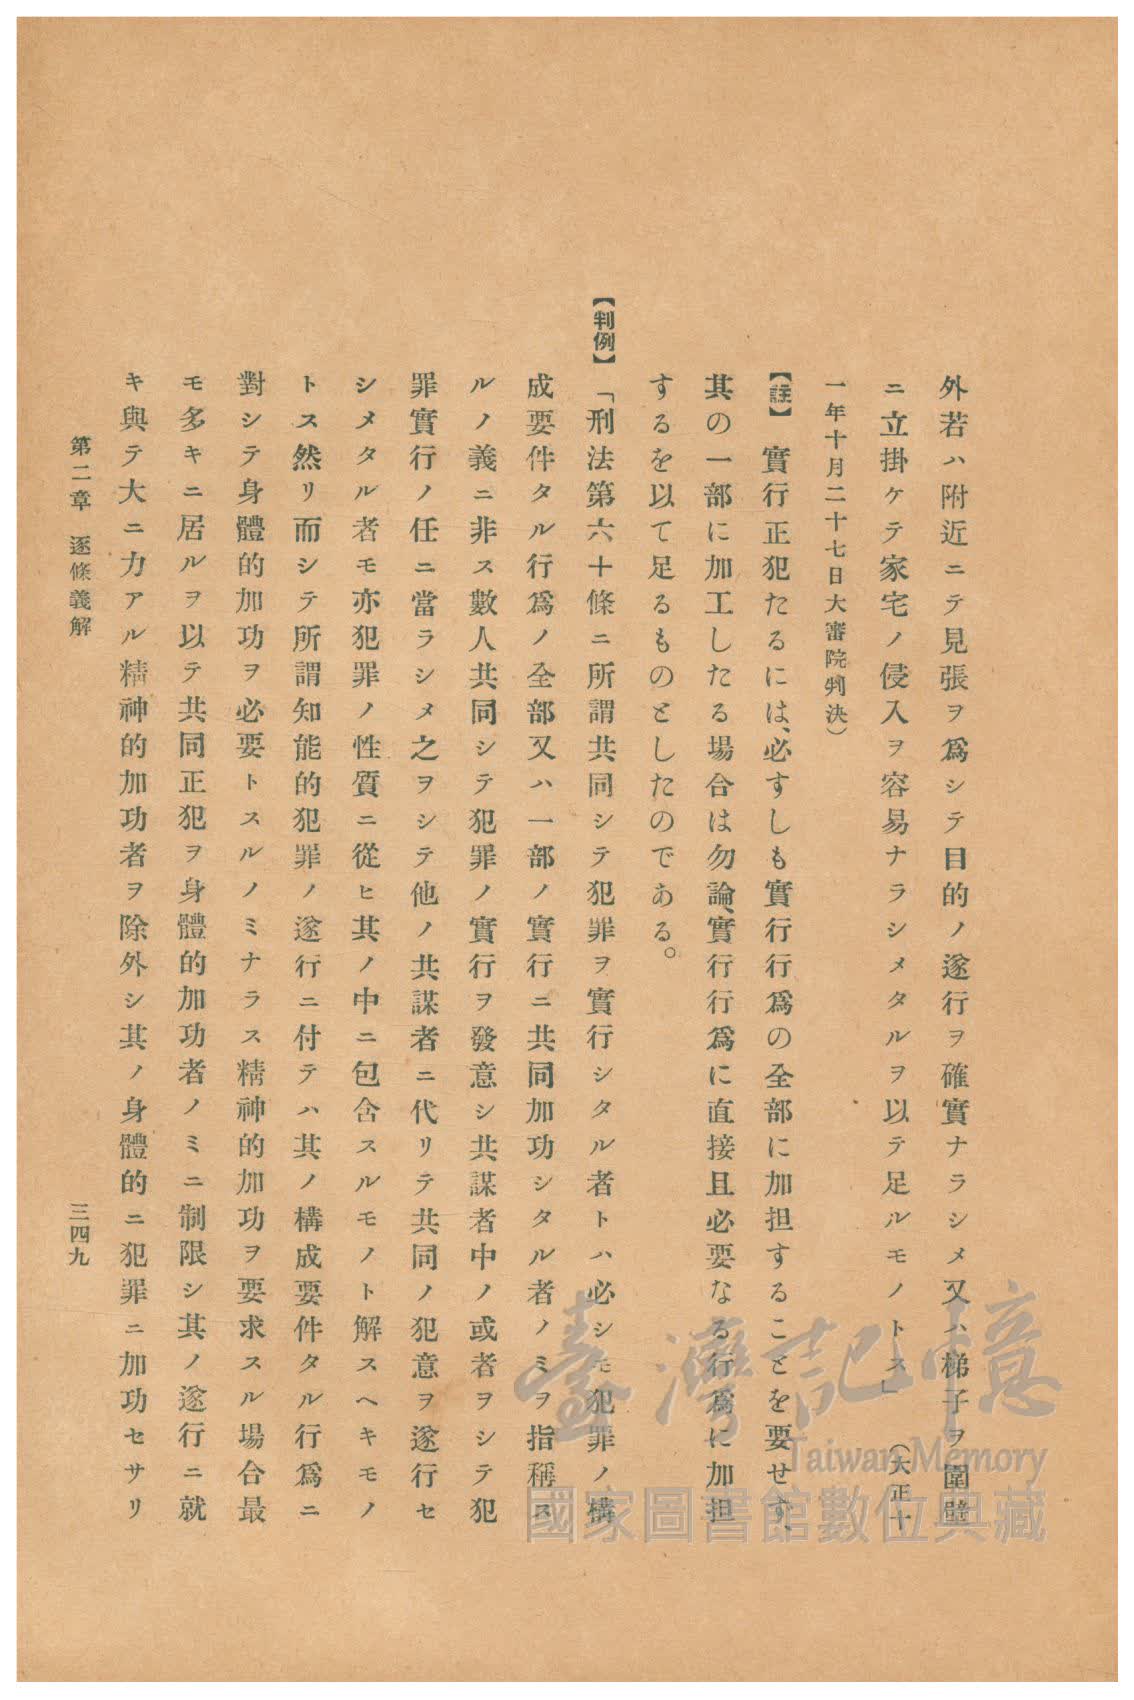 外若ハ附近ニテ見張ヲ爲シテ目的ノ遂行ヲ確實ナラシメ又ハ梯子ヲ圍壁
ニ立掛ケテ家宅ノ侵入ヲ容易ナラシメタルヲ以テ足ルモノトス」（大正十
一年十月二十七日大審院判決）
【註】　實行正犯たるには、必ずしも實行行爲の全部に加担することを要せず、
其の一部に加工したる場合は勿論、實行行爲に直接且必要なる行爲に加担
するを以て足るものとしたのである。
【判例】「刑法第六十條ニ所謂共同シテ犯罪ヲ實行シタル者トハ必シモ犯罪ノ構
成要件タル行爲ノ全部又ハ一部ノ實行ニ共同加功シタル者ノミヲ指稱ス
ルノ義ニ非ス數人共同シテ犯罪ノ實行ヲ發意シ共謀者中ノ或者ヲシテ犯
罪實行ノ任ニ當ラシメ之ヲシテ他ノ共謀者ニ代リテ共同ノ犯意ヲ遂行セ
シメタル者モ亦犯罪ノ性質ニ從ヒ其ノ中ニ包含スルモノト解スヘキモノ
トス然リ而シテ所謂知能的犯罪ノ遂行ニ付テハ其ノ構成要件タル行爲ニ
對シテ身體的加功ヲ必要トスルノミナラス精神的加功ヲ要求スル場合最
モ多キニ居ルヲ以テ共同正犯ヲ身體的加功者ノミニ制限シ其ノ遂行ニ就
キ與テ大ニ力アル精神的加功者ヲ除外シ其ノ身體的ニ犯罪ニ加功セサリ
第二章　逐條義解
三四九
臺灣記憶
Taiwan Memory
國家圖書館數位典藏